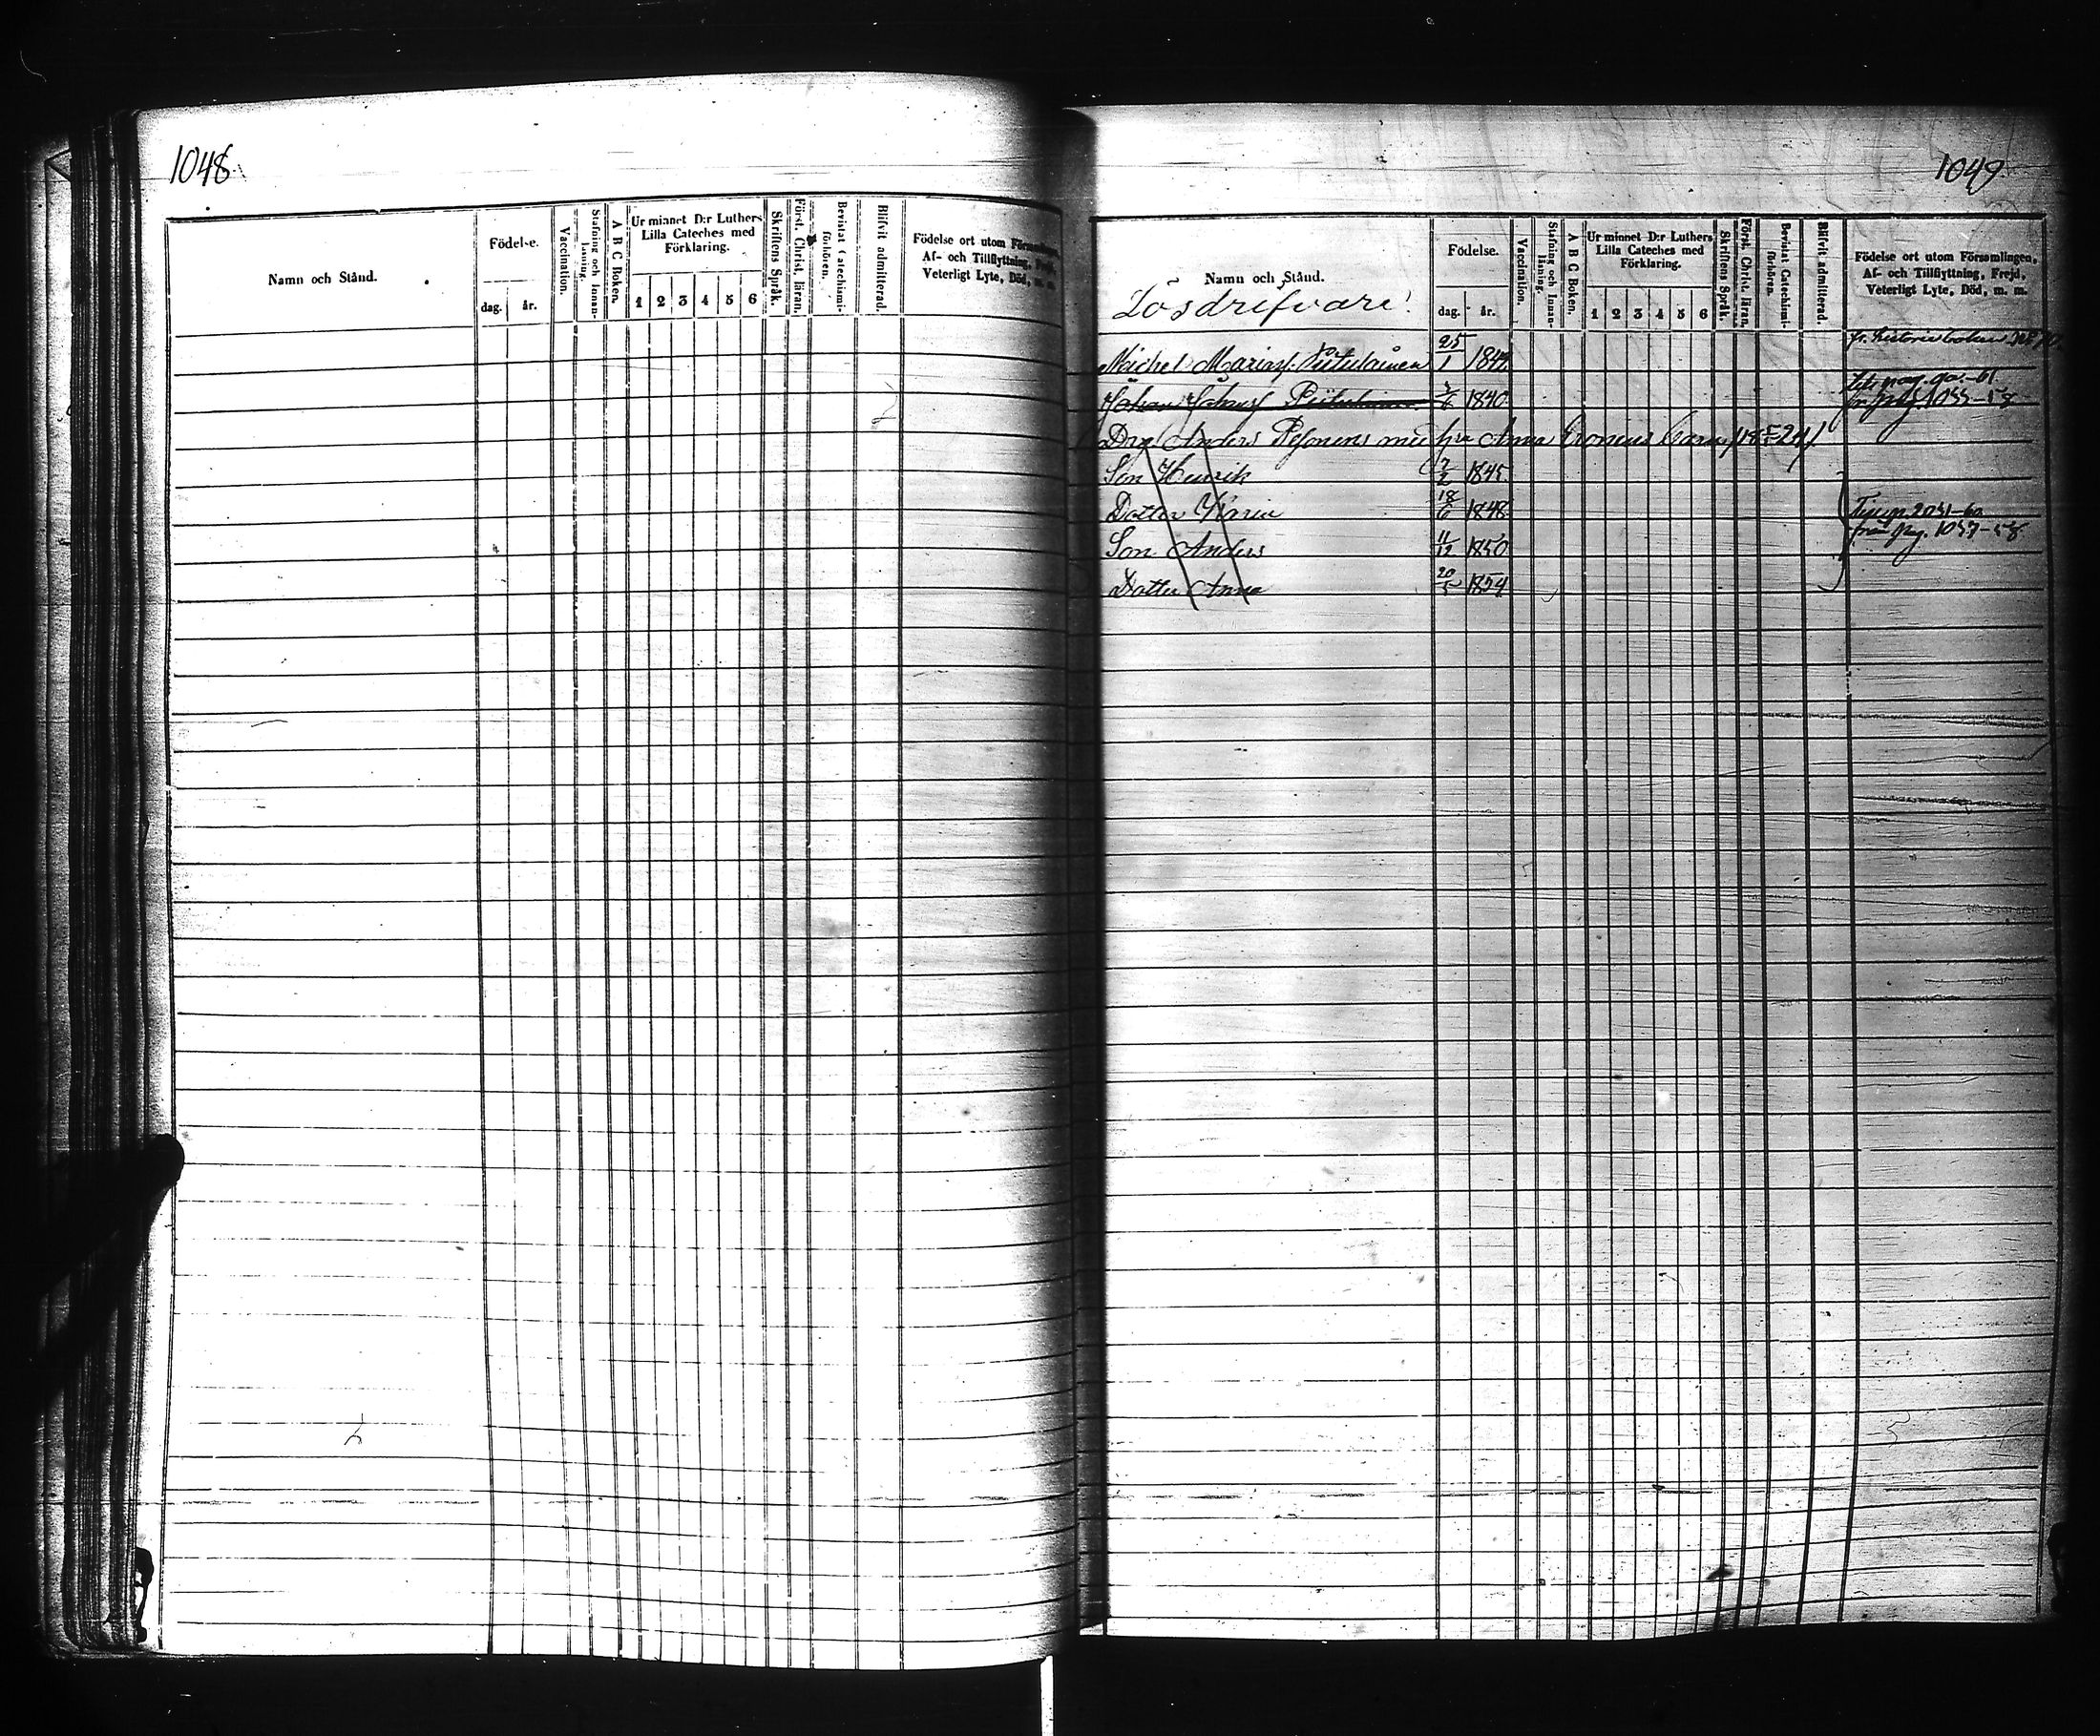 1048
Namn och Stånd.
Födelse.
dag. år.
Vaccination.
Stafning och Innanläsning.
A B C Boken.
Ur minnet D:r Luthers Lilla Cateches med Förklaring.
1 2 3 4 5 6
Skriftens Språk.
Först. Christ. läran.
Bevistat Catechismiförhören.
Blifvit admitterad.
Födelse ort utom Församlingen,
Af- och Tillflyttning, Frejd,
Veterligt Lyte, Död, m. m.
1049
Namn och Stånd.
Lösdrifvare!
Födelse.
dag. år.
Vaccination.
Stafning och Innanläsning.
A B C Boken.
Ur minnet D:r Luthers Lilla Cateches med Förklaring.
1 2 3 4 5 6
Skriftens Språk.
Först. Christ. läran.
Bevistat Catechismiförhören.
Blifvit admitterad.
Födelse ort utom Församlingen,
Af- och Tillflyttning, Frejd,
Veterligt Lyte, Död, m. m.
Michel Marias. Piitulainen 25/1
Johan Johans. Piitulainen 1840 pag. 1055-58
Anders Pesonens Anna barn
Son Henrik 1845
Dotter Maria 18/6 1848
Son Anders 11/12 1850 från pag. 1057-58
Dotter Anna 1854